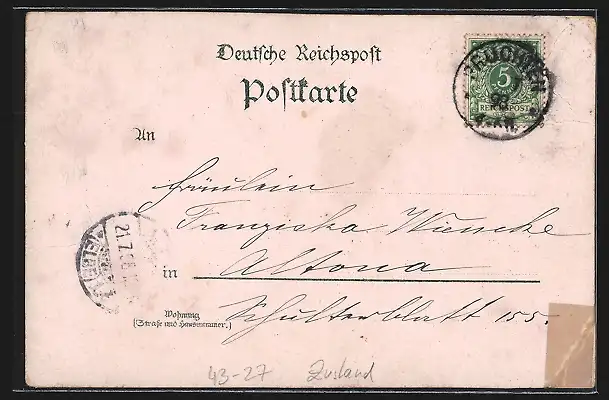 Deutsche Reichspost
Postkarte
5
REICHSPOST
An
Fräulein
Franziska Wiencke
in Altona
Schulterblatt 155.
21.7.
Wohnung
(Straße und Hausnummer.)
43-27 Zustand